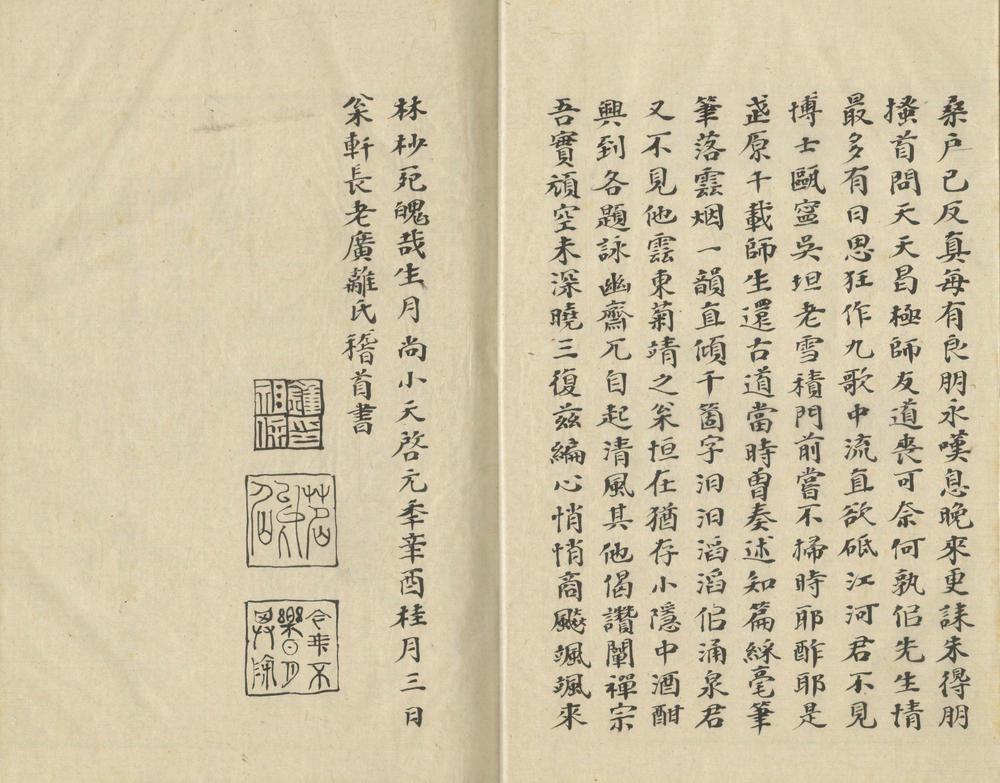 桑戶已反真每有良朋永嘆息晚來更誄未得朋
搔首問天天曷極師友道喪可奈何孰侶先生情
最多有日思狂作九歌中流直欲砥江河君不見
博士甌寧吳坦老雪積門前嘗不掃時耶酢耶是
盖原千載師生還古道當時曾奏述知篇綵毫筆
筆落雲烟一韻直傾千箇字汩汩滔滔侶涌泉君
又不見他雲東菊靖之氽恒在猶存小隱中酒酣
興到各題詠幽齋兀自起清風其他偈讚闡禪宗
吾實頑空未深曉三復茲編心悄悄商飈颯颯來
林杪死魄哉生月尚小天啓元季辛酉桂月三日
氽軒長老廣離氏稽首書
今年不
樂日月
其除